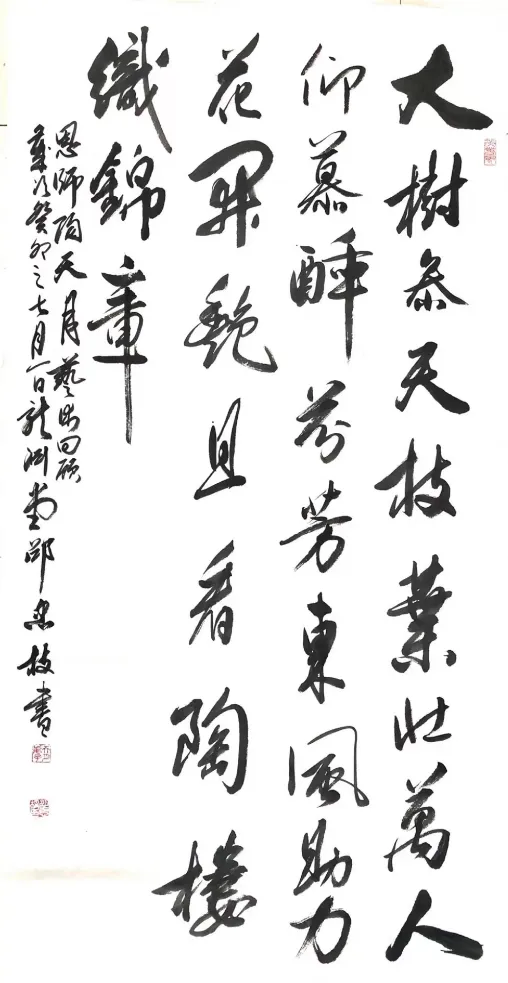 大樹參天枝葉壯萬人
仰慕醉芬芳東風助力
花開艷且看陶樓
織錦章
恩師陶天月藝術回顧
歲次癸卯之七月百龍洲堂邵忠枝書